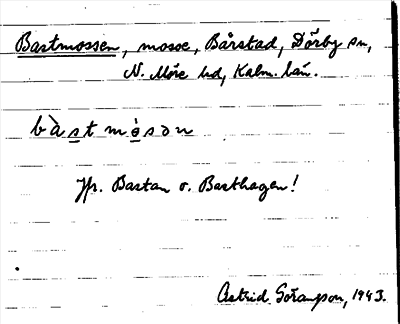 Bastmossen, mosse, Bårstad, Dörby sn,
N. Möre hd, Kalm. län.
bàstmósən
Jfr. Bastan o. Basthagen!
Astrid Göransson, 1943.